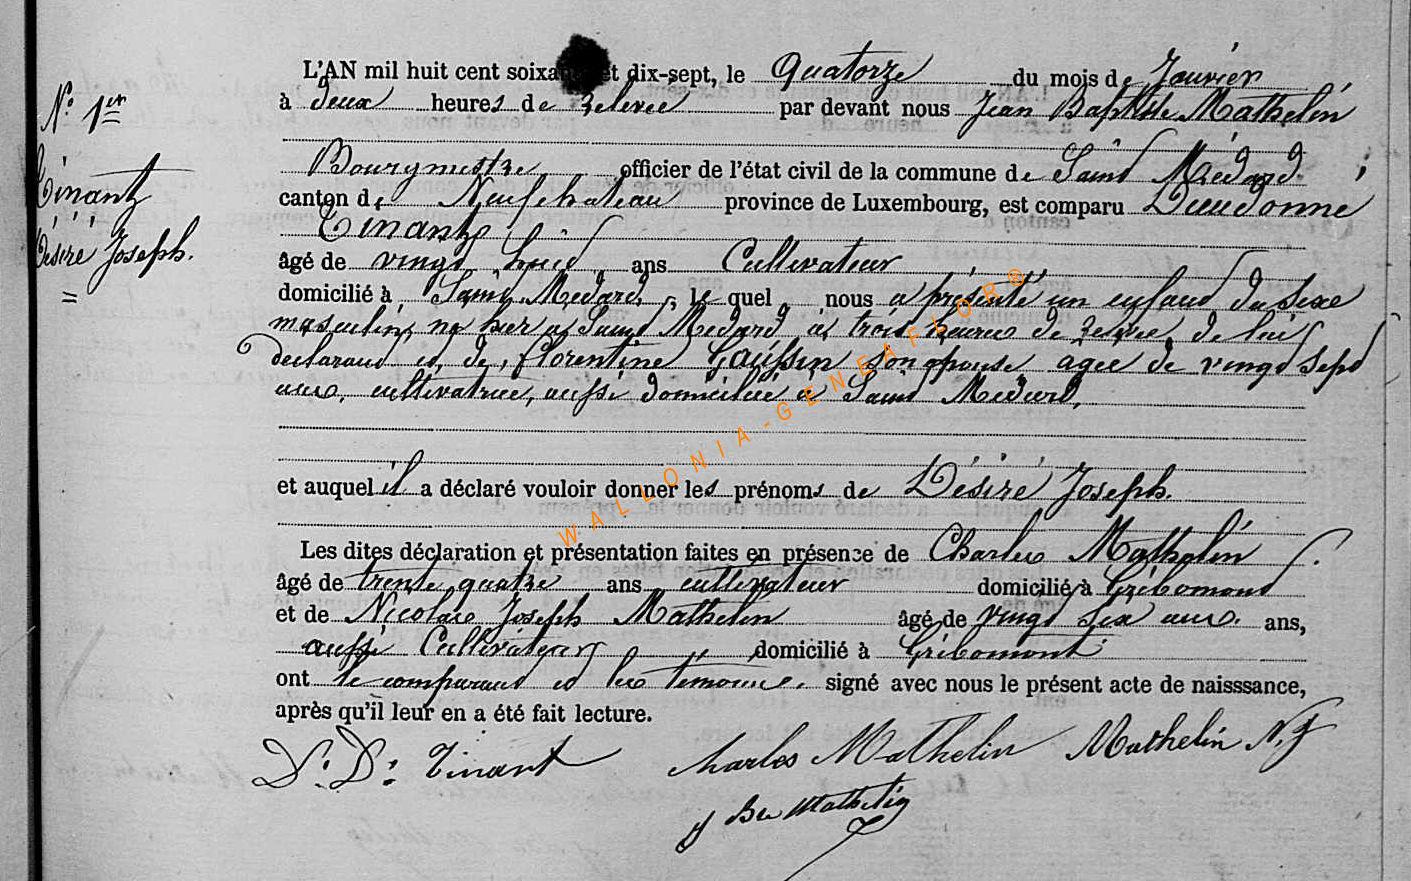 N.º 1er
Tinant
Désiré Joseph.
L'AN mil huit cent soixante et dix-sept, le Quatorze du mois de Janvier
à deux heures de relevée par devant nous Jean Baptiste Mathelin
Bourgmestre officier de l'état civil de la commune de Saint Médard
canton de Neufchateau province de Luxembourg, est comparu Dieudonné
Tinant
âgé de vingt huit ans Cultivateur
domicilié à Saint Médard, le quel nous a présenté un enfant du sexe
masculin, né hier à Saint Médard à trois heures de relevée, de lui
déclarant et de, Florentine Gaussin son épouse agée de vingt sept
ans, cultivatrice, aussi domiciliée à Saint Médard,
et auquel il a déclaré vouloir donner les prénoms de Désiré Joseph.
Les dites déclaration et présentation faites en présence de Charles Mathelin
âgé de trente quatre ans cultivateur domicilié à Gribomont
et de Nicolas Joseph Mathelin âgé de vingt six ans. ans,
aussi Cultivateur domicilié à Gribomont
ont le comparant et les témoins, signé avec nous le présent acte de naisssance,
après qu'il leur en a été fait lecture.
Dº. Dº: Tinant Charles Mathelin Mathelin N. J
J Bte Mathelin
WALLONIA-GENEAFLOR®